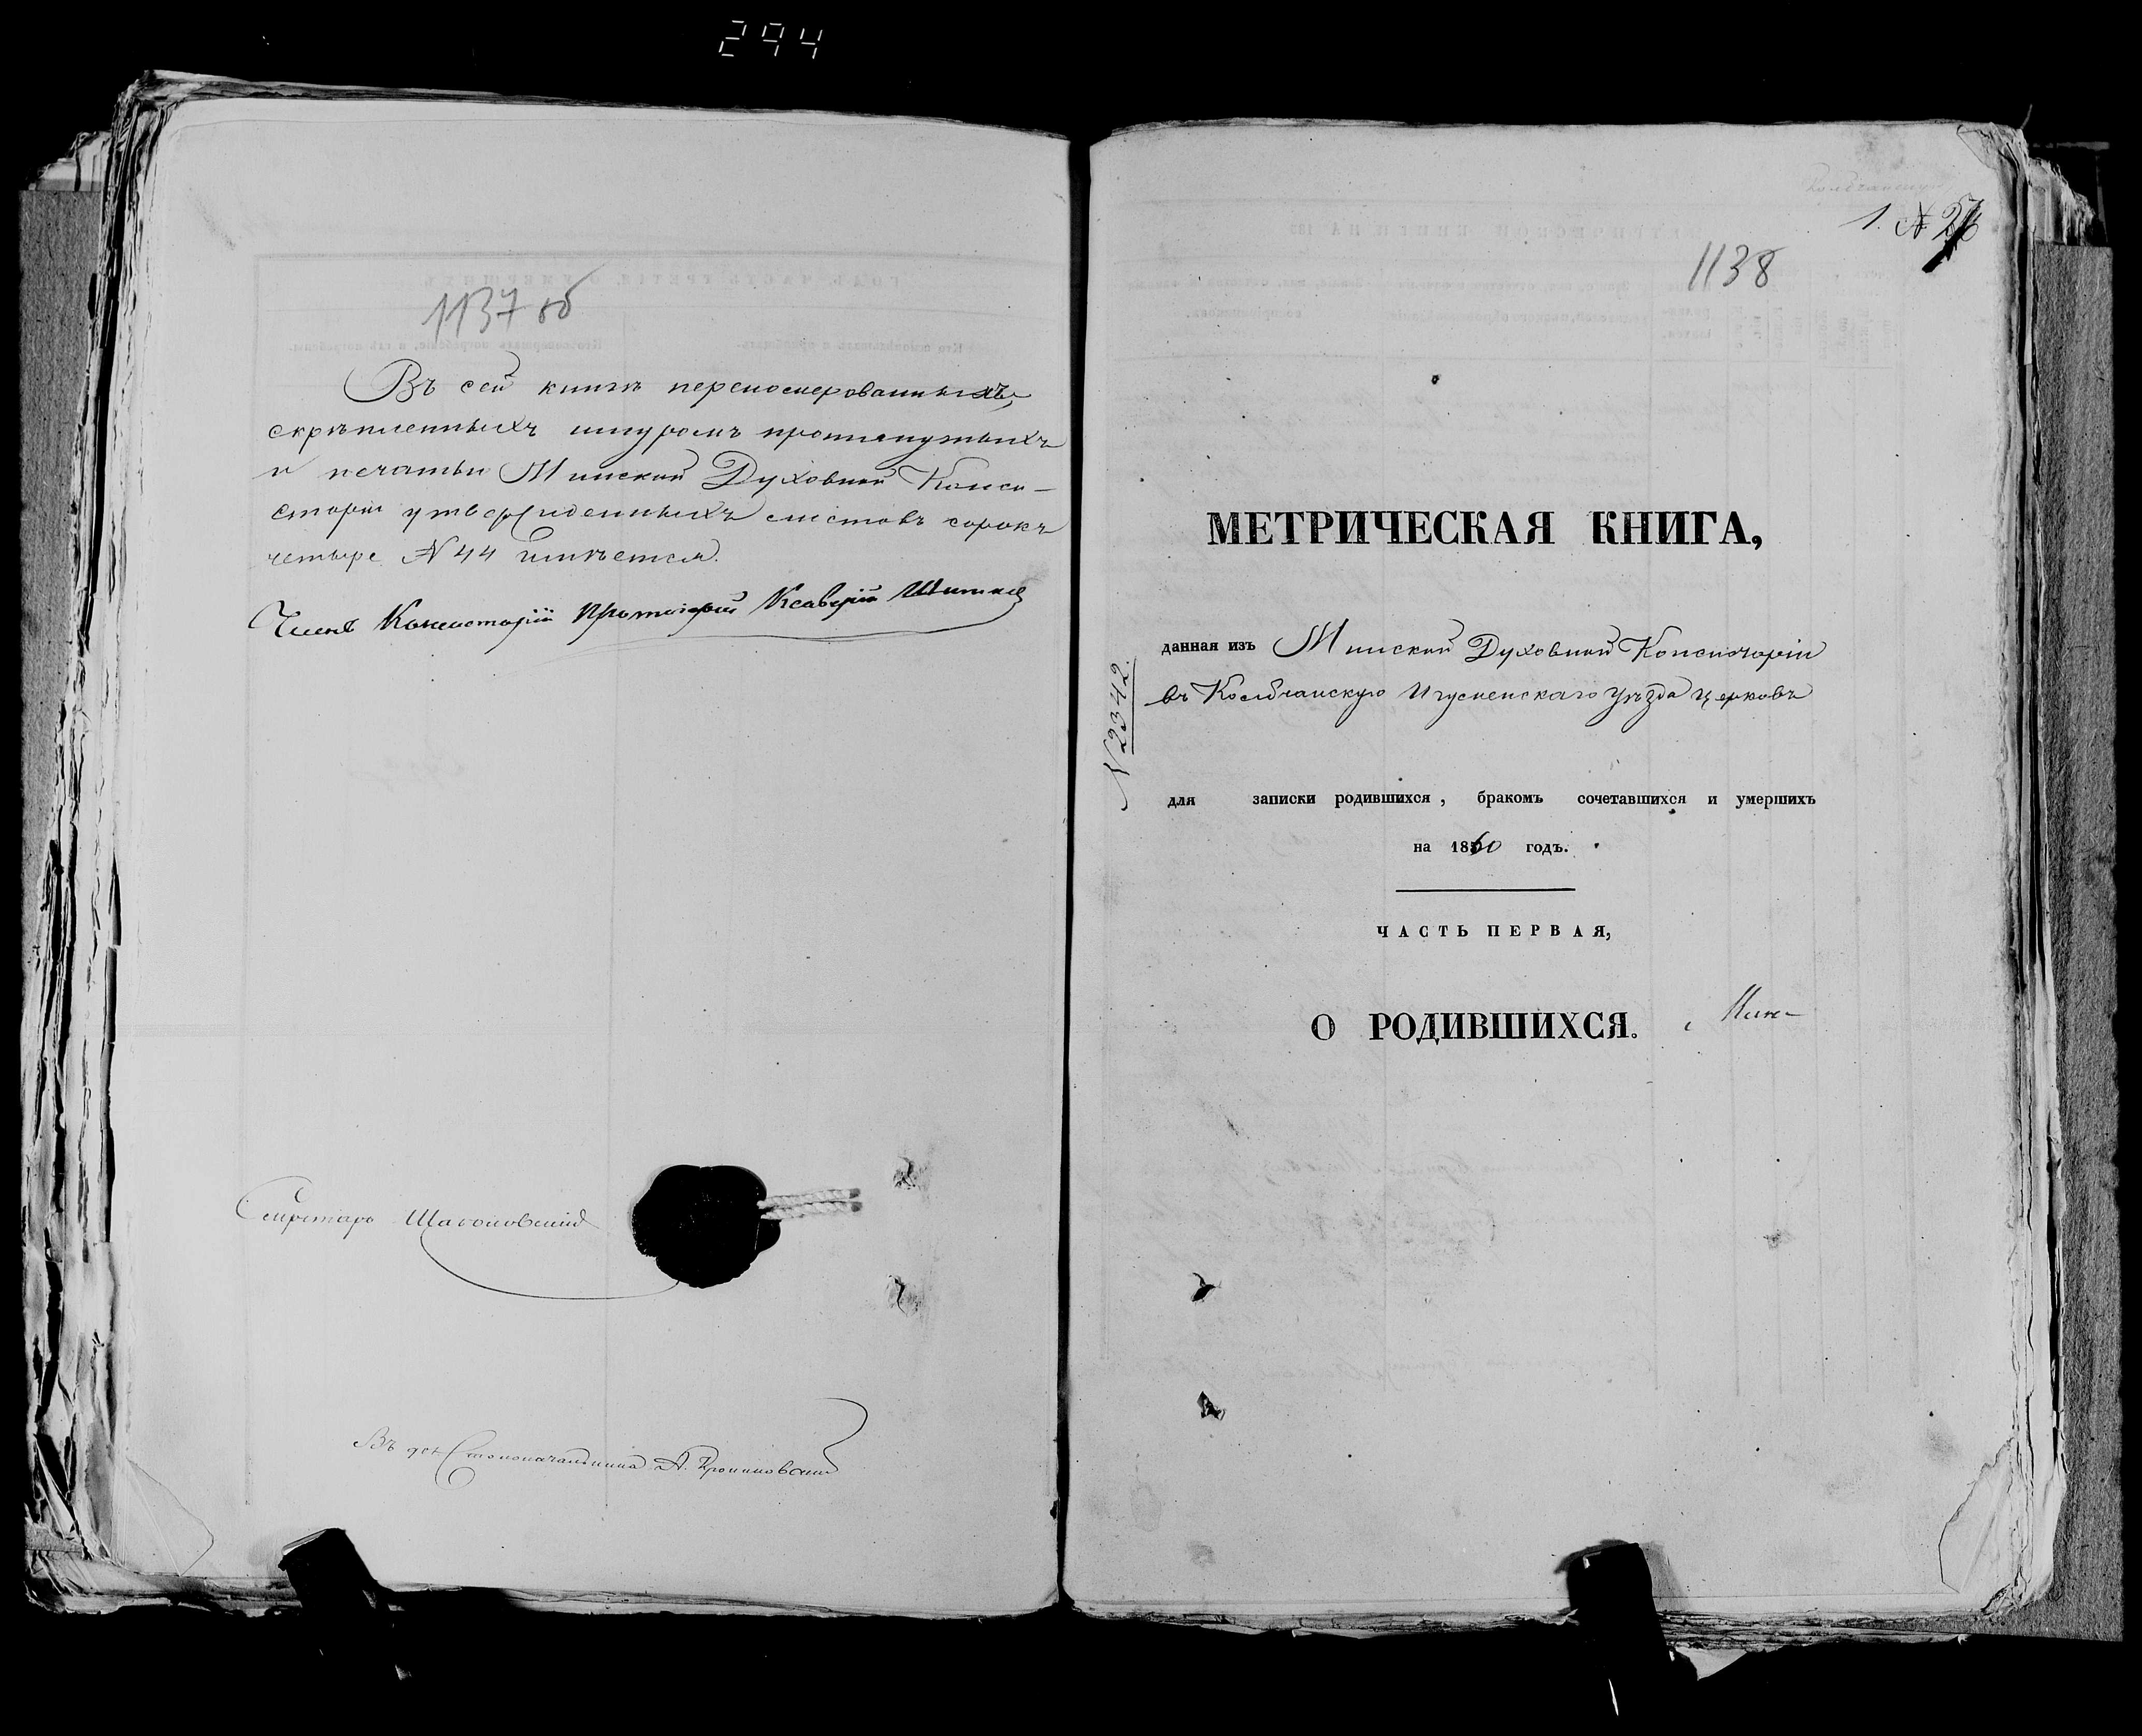 294
1137 об
Въ сей книгѣ перенесмерованныхъ,
скрѣпленныхъ шнуромъ протянутыхъ
и печатью Минской Духовной Конси-
сторіи утвержденныхъ листовъ сорокъ
четыре N 44 имѣется.
Членъ Консисторіи Протоіерей Ксаверій
Секретарь
Въ дол. Столоначальника А.
1. N
1138
МЕТРИЧЕСКАЯ КНИГА,
данная изъ Минской Духовной Консисторіи
въ Колбчанскую Игуменскаго уѣзда церковь
N 2342.
для записки родившихся, бракомъ сочетавшихся и умершихъ
на 1860 годъ.
ЧАСТЬ ПЕРВАЯ,
О РОДИВШИХСЯ.